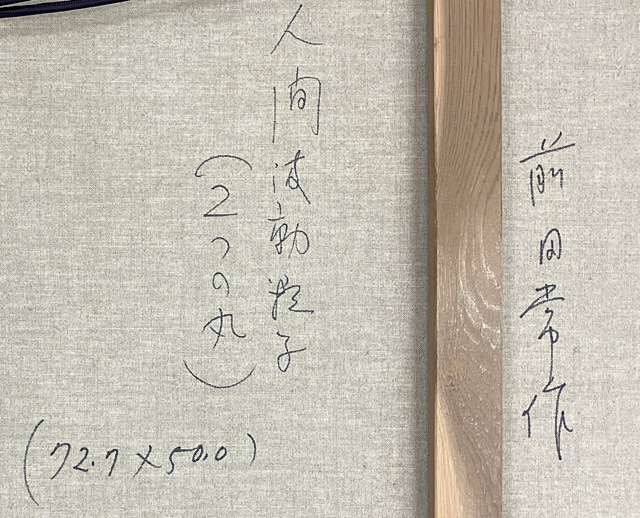 前田常作
人間波動粒子
(2つの丸)
(72.7×50.0)